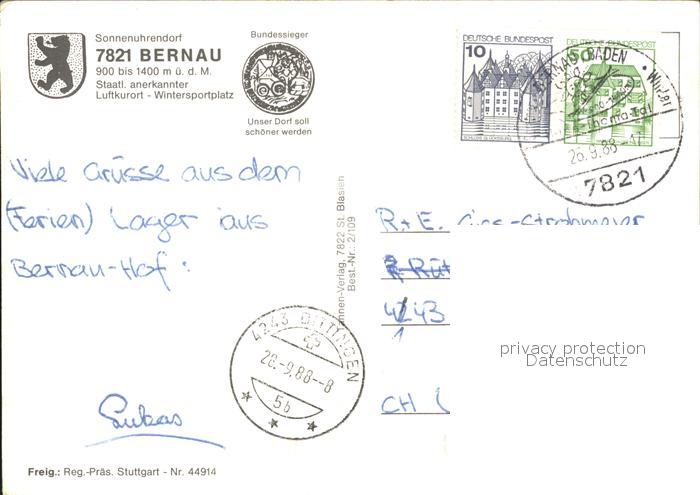 Sonnenuhrendorf
7821 BERNAU
900 bis 1400 m ü. d. M.
Staatl. anerkannter
Luftkurort - Wintersportplatz
Bundessieger
Unser Dorf soll
schöner werden
DEUTSCHE BUNDESPOST
10
SCHLOSS GLÜCKSBURG
DEUTSCHE BUNDESPOST
50
BERNAU, BADEN
Thoma-Tal
26.9.88
7821
Viele Grüsse aus dem
(Ferien) Lager aus
Bernau-Hof:
Lukas
nnen-Verlag, 7822 St. Blasien
Best.-Nr.: 2/109
R+E.
CH
4243 DITTINGEN
28.-9.88--8
5b
privacy protection
Datenschutz
Freig.: Reg.-Präs. Stuttgart - Nr. 44914